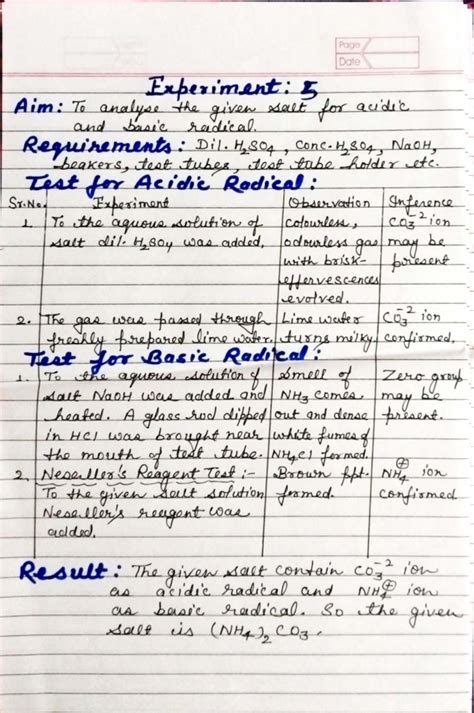 Page
Date
Experiment: 5
Aim: To analyse the given salt for acidic
and basic radical.
Requirements: Dil. H₂SO₄, Conc. H₂SO₄, NaOH,
beakers, test tubes, test tube holder etc.
Test for Acidic Radical:
Sr.No. Experiment Observation Inference
1. To the aquous solution of colourless, CO₃⁻² ion
salt dil. H₂SO₄ was added. odourless gas may be
with brisk- present
effervescences
evolved.
2. The gas was passed through Lime water CO₃⁻² ion
freshly prepared lime water. turns milky confirmed.
Test for Basic Radical:
1. To the aquous solution of Smell of Zero group
salt NaOH was added and NH₃ comes may be
heated. A glass rod dipped out and dense present.
in HCl was brought near white fumes of
the mouth of test tube. NH₄Cl formed.
2. Nesseller's Reagent Test :- Brown ppt. NH₄⊕ ion
To the given salt solution formed. confirmed
Nesseller's reagent was
added.
Result: The given salt contain CO₃⁻² ion
as acidic radical and NH₄⊕ ion
as basic radical. So the given
salt is (NH₄)₂CO₃.